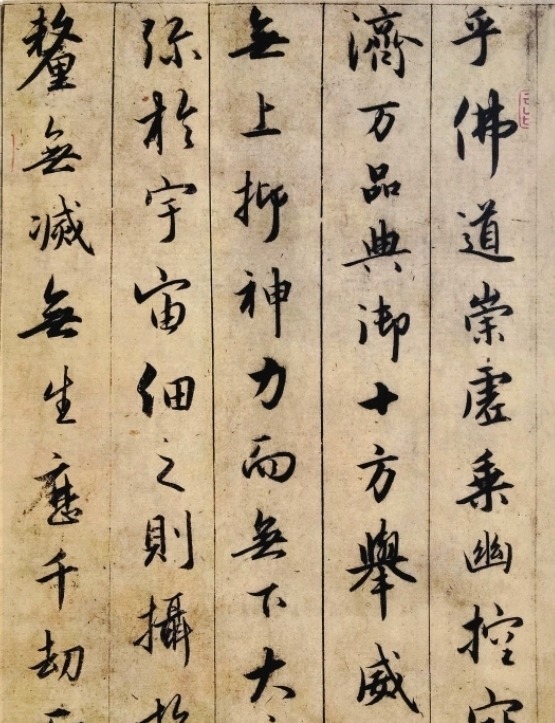 乎佛道崇虛乘幽控
濟万品典御十方舉威
無上抑神力而無下大
弥於宇宙細之則攝
釐無滅無生歷千劫